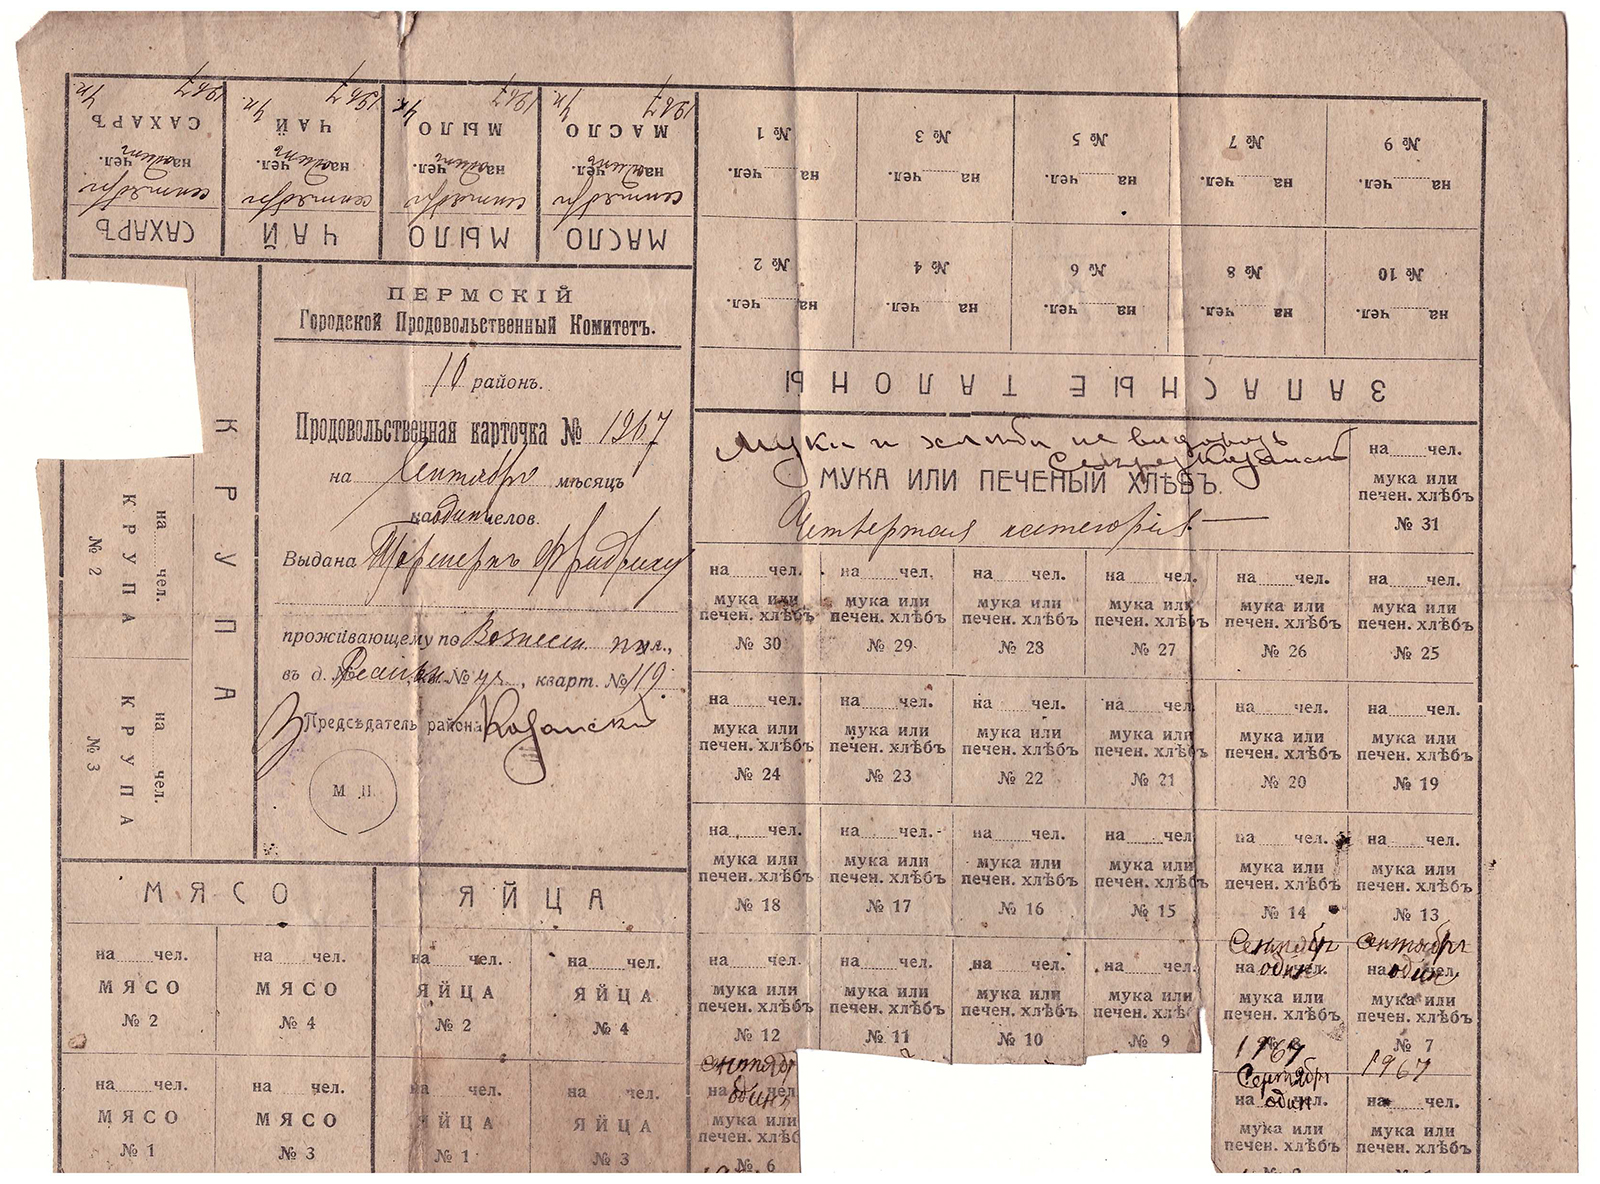 1267 1267 1267 1267
САХАРЪ ЧАЙ МЫЛО МАСЛО
на одинъ чел. на одинъ чел. на одинъ чел. на одинъ чел.
сентябрь сентябрь сентябрь сентябрь
САХАРЪ ЧАЙ МЫЛО МАСЛО
№ 1 № 3 № 5 № 7 № 9
на чел. на чел. на чел. на чел. на чел.
№ 2 № 4 № 6 № 8 № 10
на чел. на чел. на чел. на чел. на чел.
ЗАПАСНЫЕ ТАЛОНЫ
ПЕРМСКІЙ
Городской Продовольственный Комитетъ.
10 районъ.
Продовольственная карточка № 1267
на Сентябрь мѣсяцъ
на один челов.
Выдана Фридриху
проживающему по Вознесен ул.,
въ д. № , кварт. № 119
Предсѣдатель района Казанский
М П
КРУПА
на чел.
КРУПА
№ 2
на чел.
КРУПА
№ 3
Муки и хлеба не
МУКА ИЛИ ПЕЧЕНЫЙ ХЛѢБЪ.
Четвертая категорія
на чел.
мука или
печен. хлѣбъ
№ 31
на чел. на чел. на чел. на чел. на чел. на чел.
мука или мука или мука или мука или мука или мука или
печен. хлѣбъ печен. хлѣбъ печен. хлѣбъ печен. хлѣбъ печен. хлѣбъ печен. хлѣбъ
№ 30 № 29 № 28 № 27 № 26 № 25
на чел. на чел. на чел. на чел. на чел. на чел.
мука или мука или мука или мука или мука или мука или
печен. хлѣбъ печен. хлѣбъ печен. хлѣбъ печен. хлѣбъ печен. хлѣбъ печен. хлѣбъ
№ 24 № 23 № 22 № 21 № 20 № 19
на чел. на чел. на чел. на чел. на чел. на чел.
мука или мука или мука или мука или мука или мука или
печен. хлѣбъ печен. хлѣбъ печен. хлѣбъ печен. хлѣбъ печен. хлѣбъ печен. хлѣбъ
№ 18 № 17 № 16 № 15 № 14 № 13
Сентябрь Сентябрь
один один
на чел. на чел. на чел. на чел. на чел. на чел.
мука или мука или мука или мука или мука или мука или
печен. хлѣбъ печен. хлѣбъ печен. хлѣбъ печен. хлѣб печен. хлѣбъ печен. хлѣбъ
№ 12 № 11 № 10 № 9 № 8 № 7
1267 1267
Сентябрь
один
на чел. на чел.
мука или мука или
печен. хлѣбъ печен. хлѣбъ
один
на чел
мука или
печен. хлѣб
№ 6
МЯСО ЯЙЦА
на чел. на чел. на чел. на чел.
МЯСО МЯСО ЯЙЦА ЯЙЦА
№ 2 № 4 № 2 № 4
на чел. на чел. на чел. на чел.
МЯСО МЯСО ЯЙЦА ЯЙЦА
№ 1 № 3 № 1 № 3